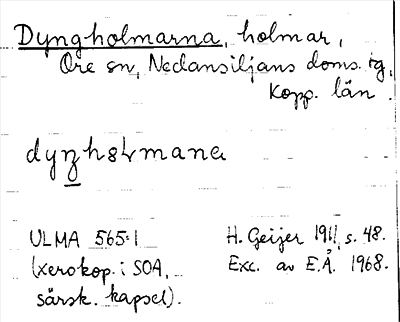 Dyngholmarna, holmar,
Ore sn, Nedansiljans doms. tg,
Kopp. län.
ULMA 565:1
(xerokop. i SOA,
särsk. kapsel).
H. Geijer 1911, s. 48.
Exc. av E.Å. 1968.